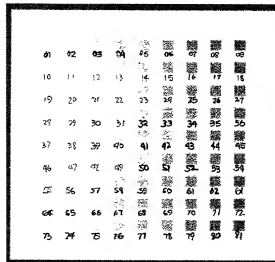 01 02 03 04 05 06 07 08 09
10 11 12 13 14 15 16 17 18
19 20 21 22 23 24 25 26 27
28 29 30 31 32 33 34 35 36
37 38 39 40 41 42 43 44 45
46 47 48 49 50 51 52 53 54
55 56 57 58 59 60 61 62 63
64 65 66 67 68 69 70 71 72
73 74 75 76 77 78 79 80 81